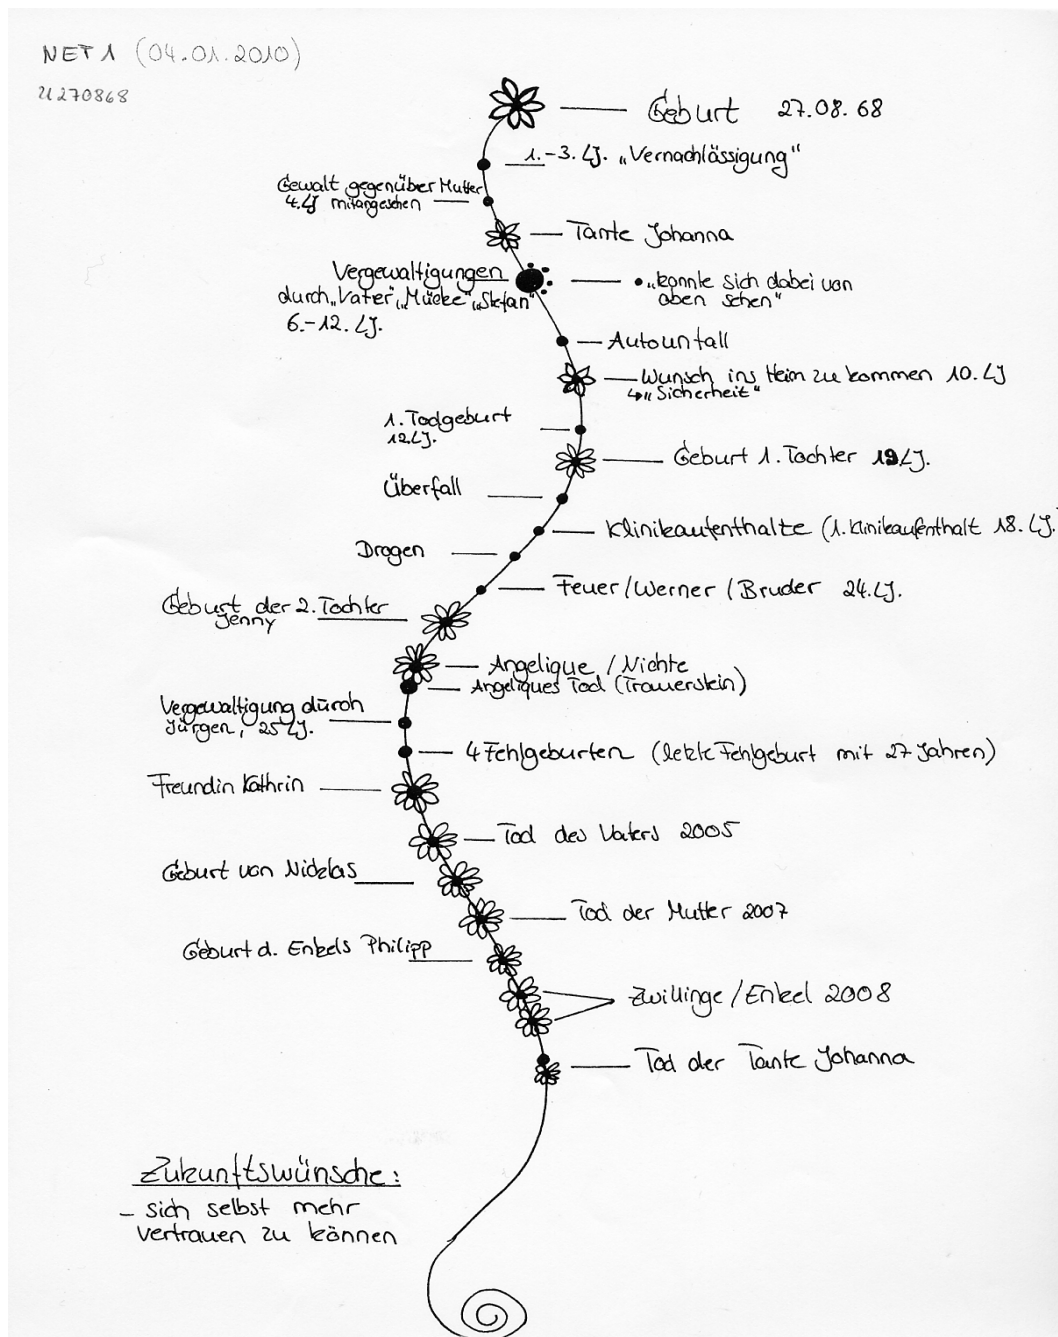 NET 1 (04.01.2010)
U270868
Geburt 27.08.68
1.-3. LJ. „Vernachlässigung"
Gewalt gegenüber Mutter
4. LJ mitangesehen
Tante Johanna
Vergewaltigungen
durch „Vater", „Mücke", „Stefan"
6.-12. LJ.
• „konnte sich dabei von
oben sehen"
Autounfall
Wunsch ins Heim zu kommen 10. LJ
↳ „Sicherheit"
1. Todgeburt
12LJ.
Geburt 1. Tochter 19LJ.
Überfall
Klinikaufenthalte (1. Klinikaufenthalt 18. LJ.
Drogen
Feuer/Werner/Bruder 24. LJ.
Geburt der 2. Tochter
Jenny
Angelique / Nichte
Angeliques Tod (Trauerstein)
Vergewaltigung durch
Jürgen, 25 LJ.
4 Fehlgeburten (letzte Fehlgeburt mit 27 Jahren)
Freundin Kathrin
Tod des Vaters 2005
Geburt von Nicklas
Tod der Mutter 2007
Geburt d. Enkels Philipp
Zwillinge/Enkel 2008
Tod der Tante Johanna
Zukunftswünsche:
– sich selbst mehr
vertrauen zu können